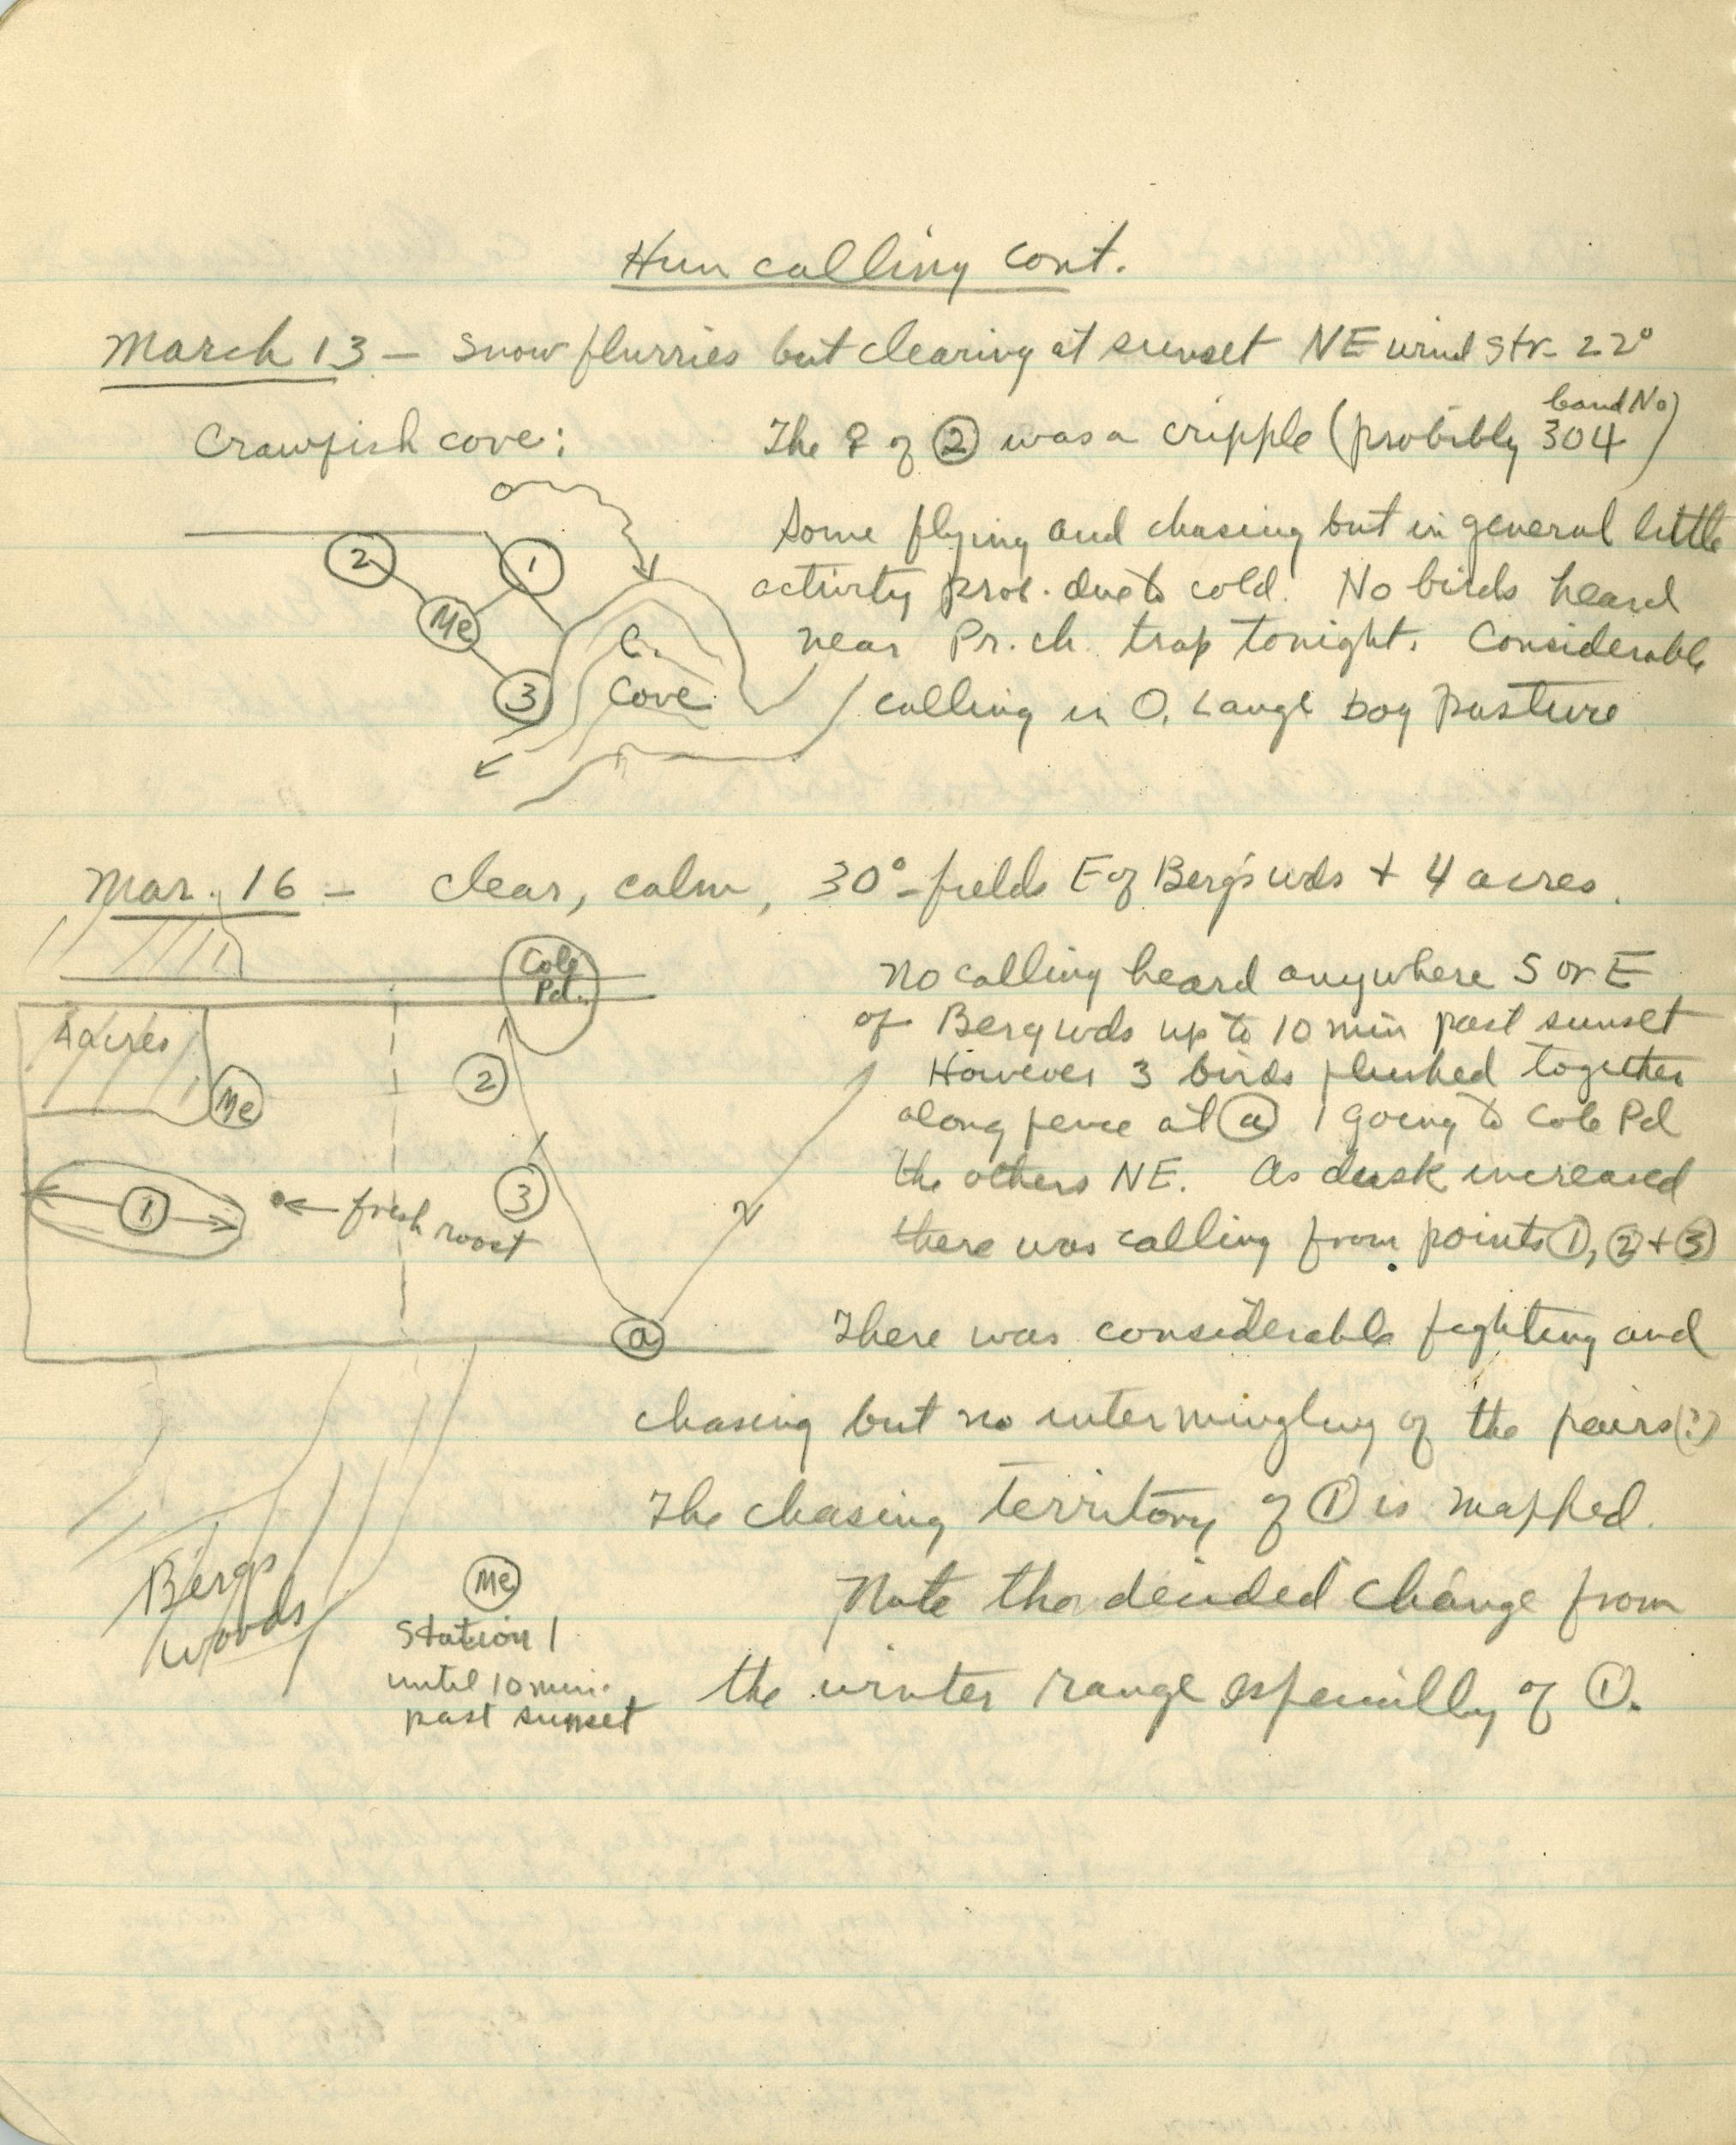 Hun calling cont.
March 13 – Snow flurries but clearing at sunset NE wind str – 22°
Crawfish cove:
The ♀ of ② was a cripple (probibly 304)
band No
Some flying and chasing but in general little
activity prob. due to cold. No birds heard
near Pr. ch. trap tonight. Considerable
calling in O. Lange bog pasture
2
1
Me
3
C.
Cove
Mar. 16 – clear, calm, 30° – fields E of Berg's wds + 4 acres.
No calling heard anywhere S or E
of Berg wds up to 10 min past sunset
However 3 birds flushed together
along fence at ⓐ 1 going to Cob Pd
the others NE. As dusk increased
there was calling from points ①, ② + ③
There was considerable fighting and
chasing but no intermingling of the pairs (?)
The chasing territory of ① is mapped.
Note the decided change from
the winter range especially of ①.
Cob
Pd.
4 acres
Me
2
3
1
← fresh roost
a
Bergs
woods
Me
Station 1
until 10 min.
past sunset